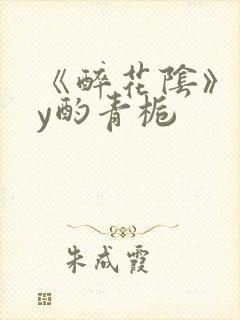 《醉花陰》
y酌青梔
朱成霞